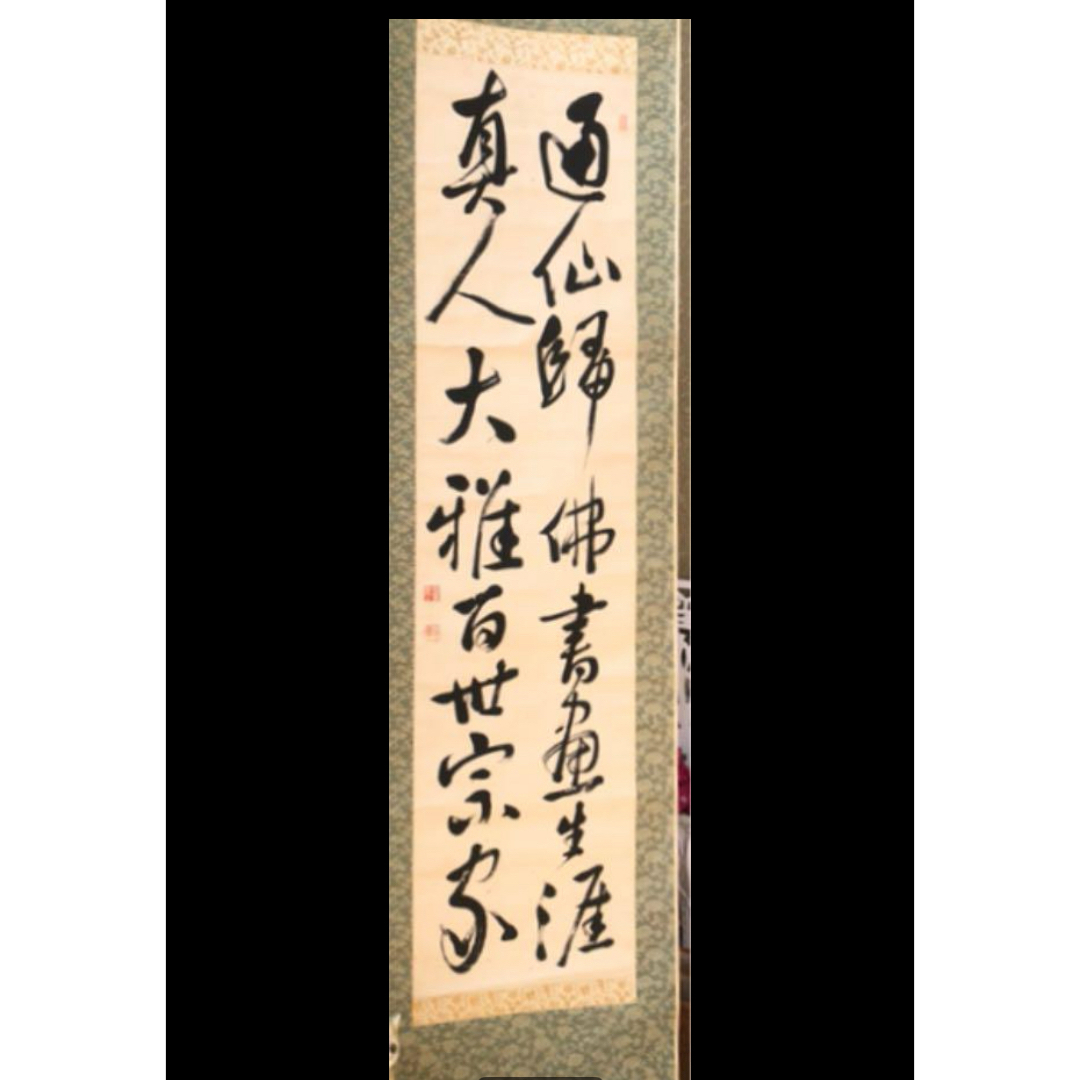 通仙歸佛書畫生涯
真人大雅百世宗家